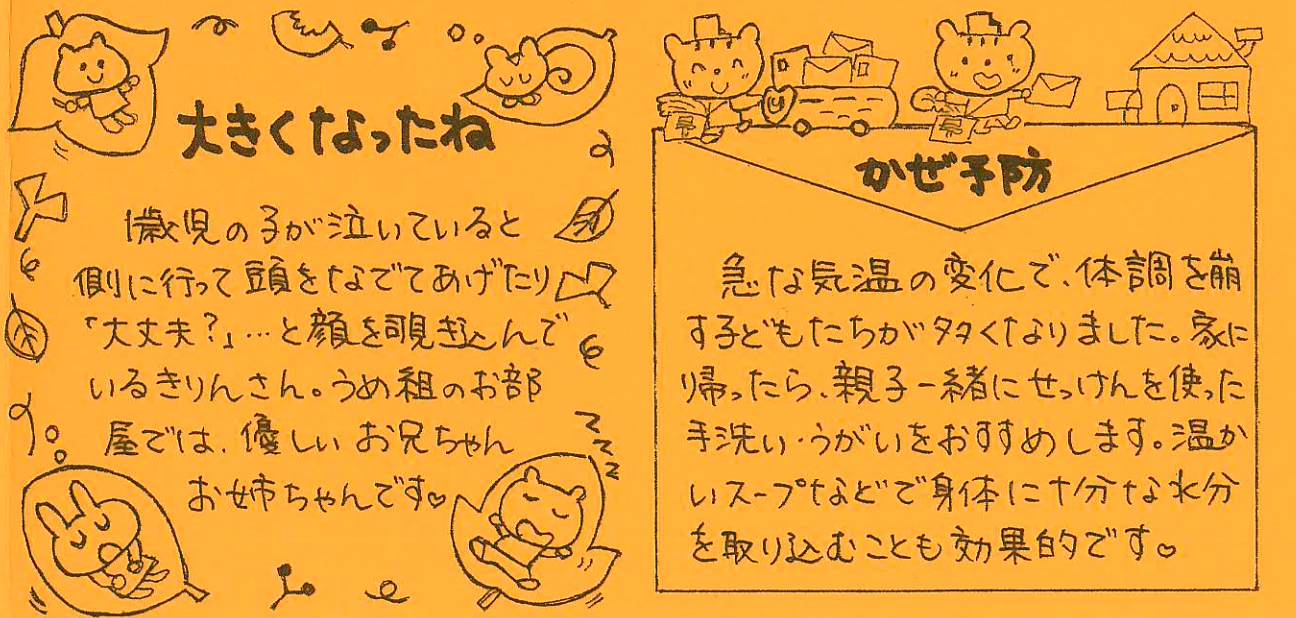 大きくなったね
1歳児の子が泣いていると
側に行って頭をなでてあげたり
「大丈夫?」…と顔を覗き込んで
いるきりんさん。うめ組のお部
屋では、優しいお兄ちゃん
お姉ちゃんです♡
zzz
かぜ予防
急な気温の変化で、体調を崩
す子どもたちが多くなりました。家に
帰ったら、親子一緒にせっけんを使った
手洗い・うがいをおすすめします。温か
いスープなどで身体に十分な水分
を取り込むことも効果的です。